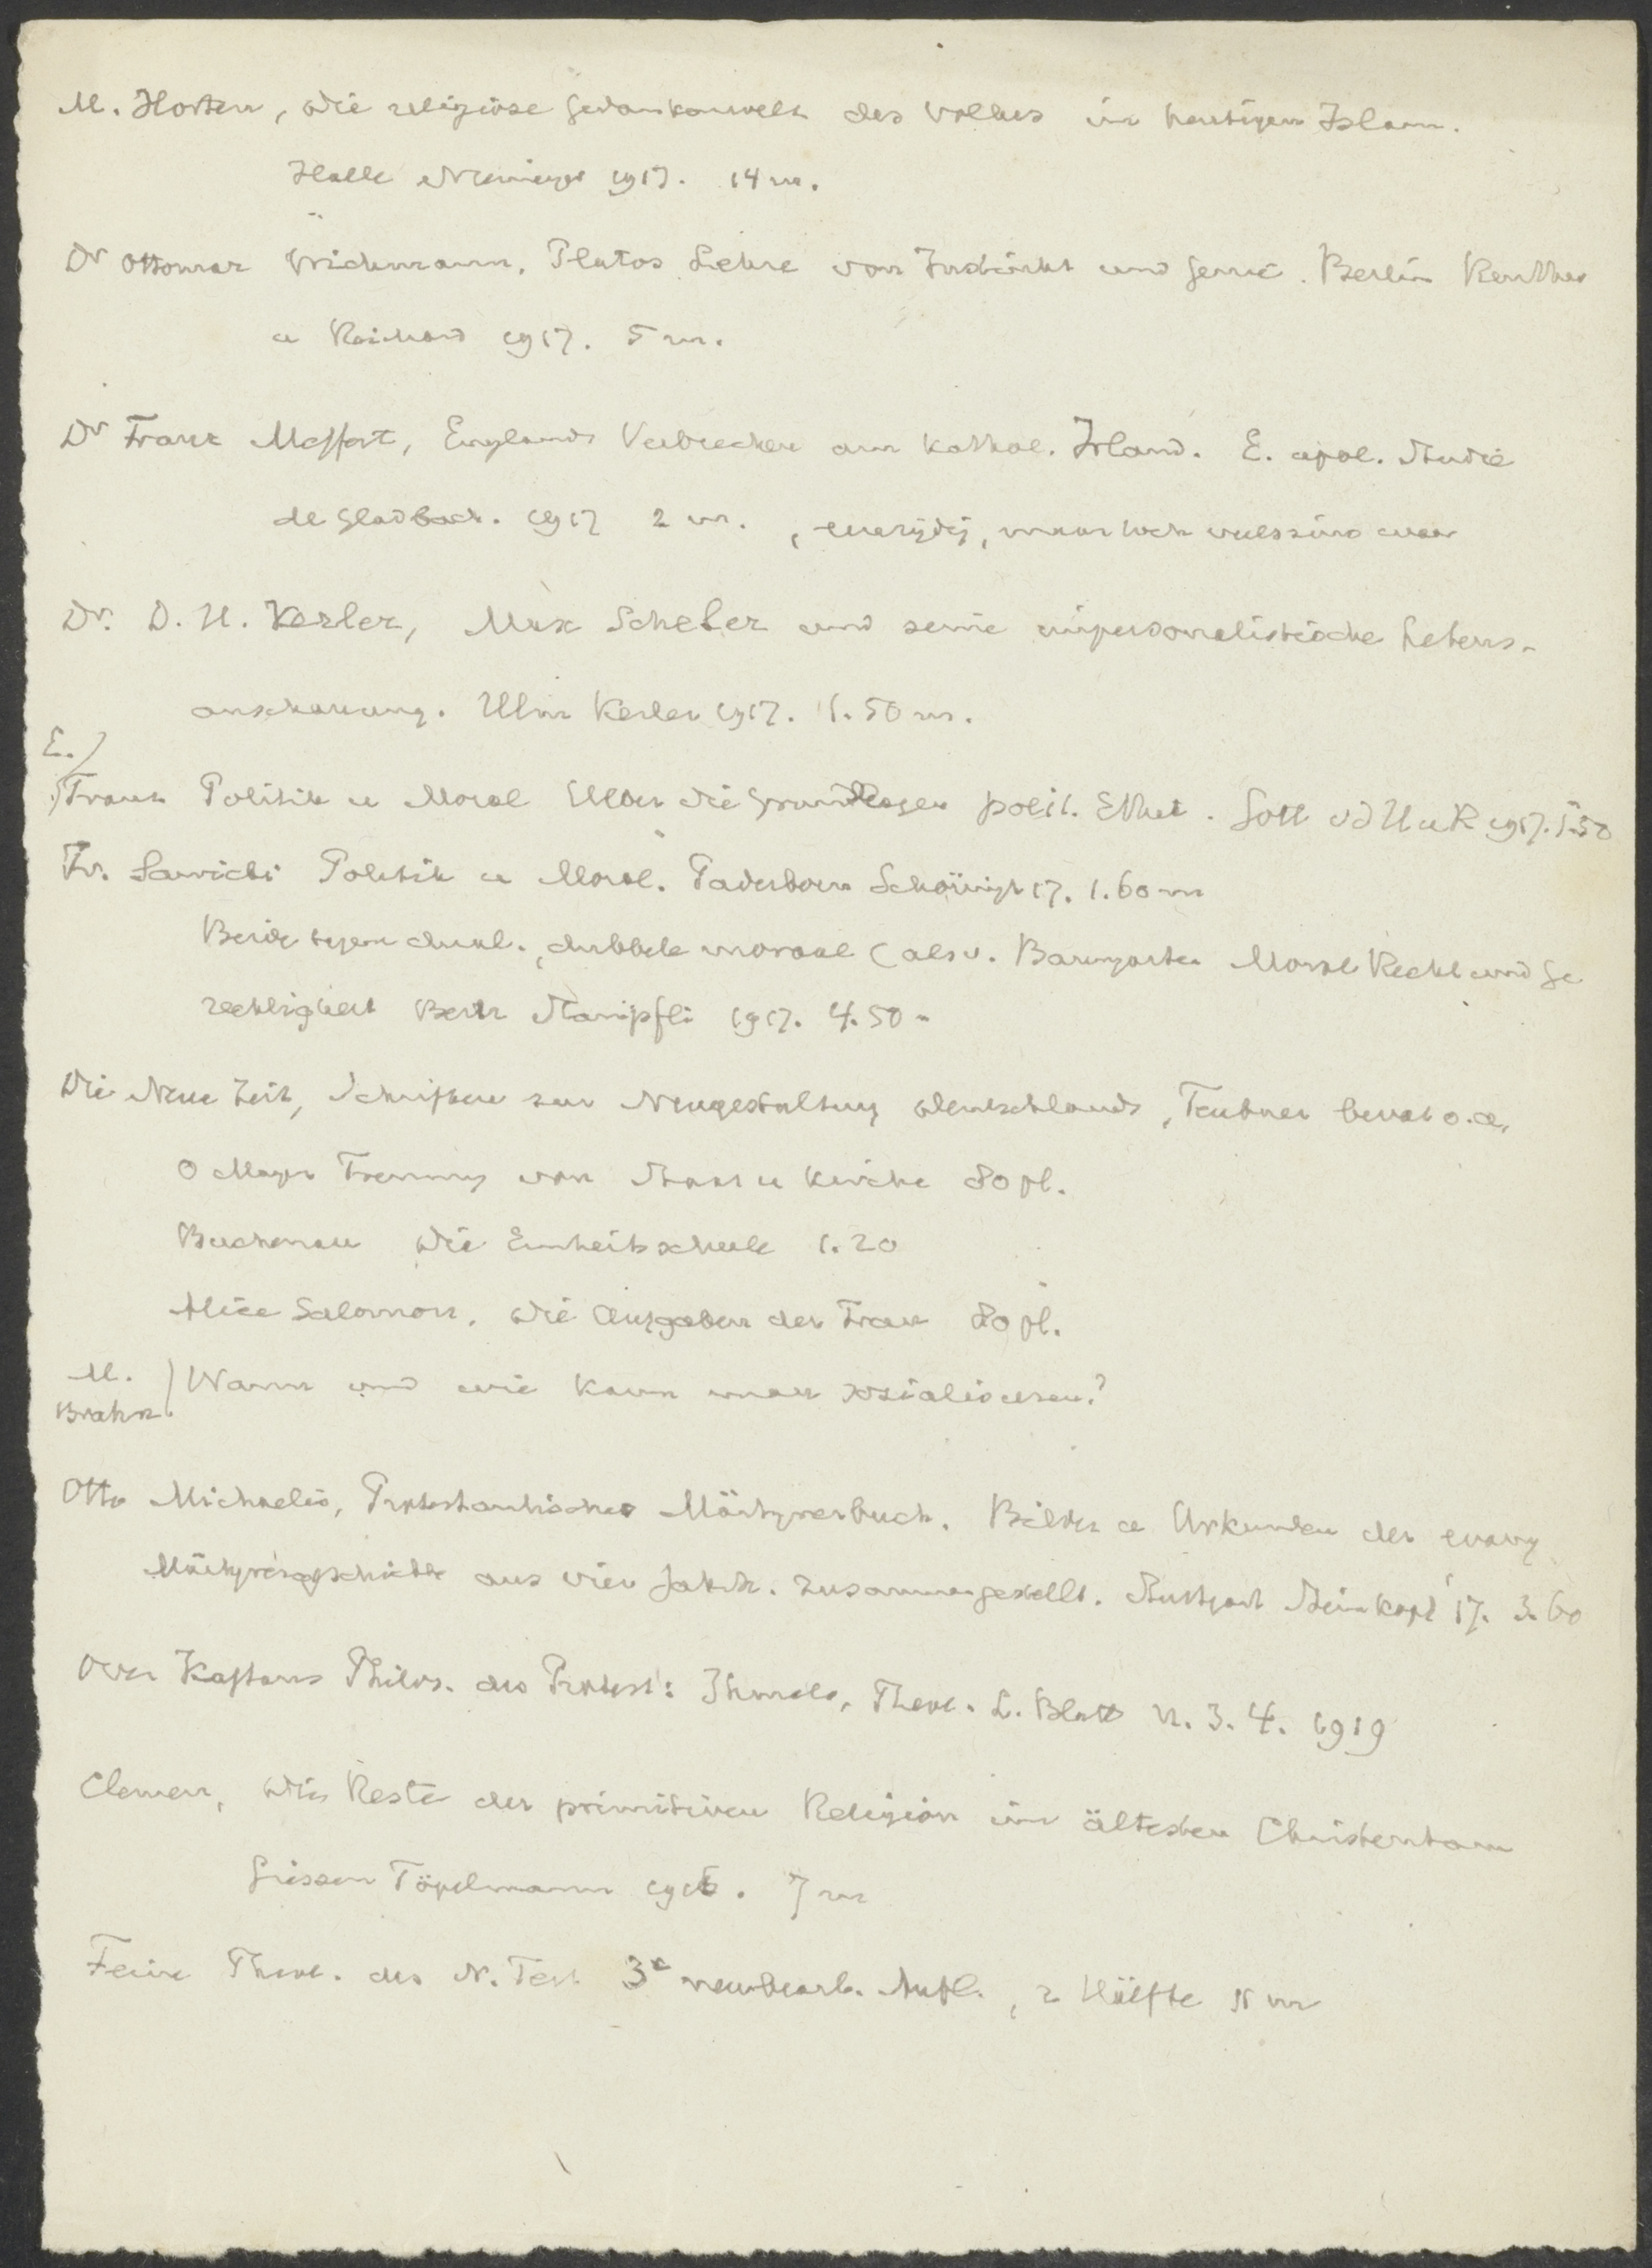 M. Horten, Die religiöse Gedankenwelt des Volkes im heutigen Islam.
Halle Niemeyer 1917. 14 m.
Dr Ottomar Wichmann, Platos Lehre von Instinkt und Genie. Berlin Reuther
u Reichard 1917. 5 m.
Dr Franz Meffert, Englands Verbrechen am kathol. Irland. E. apol. Studie
M Gladbach. 1917 2 m. , eenzijdig, maar toch veelszins waar
Dr. D. H. Kerler, Max Scheler und seine impersonalistische Lebens-
anschauung. Ulm Kerler 1917. 1.50 m.
E.
Franz Politik u Moral Ueber die Grundlagen polit. Ethik. Gött vd H u R 1917. 1.50
Fr. Sawicki Politik u Moral. Paderborn Schöningh 17. 1.60 m
Beide tegen dubbele moraal (als v. Baumgarten Moral Recht und Ge
rechtigkeit Bern Stämpfli 1917. 4.50 -
Die Neue Zeit, Schriften zur Neugestaltung Deutschlands, Teubner bevat o.a,
O Mayer Trennung von Staat u Kirche 80 pf.
Buchenau Die Einheitsschule 1.20
Alice Salomon, Die Aufgaben der Frau 80 pf.
M. Brahn. Wann und wie kann man sozialisieren?
Otto Michaelis, Protestantisches Märtyrerbuch. Bilder u Urkunden der evang
Märtyrergeschichte aus vier Jahrh. zusammengestellt. Stuttgart Steinkopf 17. 3.60
Over Kaftans Philos. des Protest: Ihmels, Theol. L. Blatt n. 3. 4. 1919
Clemen, Die Reste der primitiven Religion im ältesten Christentum
Giessen Töpelmann 1916. 7 m
Feine Theol. des N. Test 3e neubearb. Aufl. , 2 Hälfte m